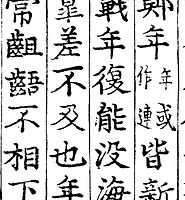 鄭年年或作連皆新
戰年復能没海
皐差不及也年
常齟齬不相下